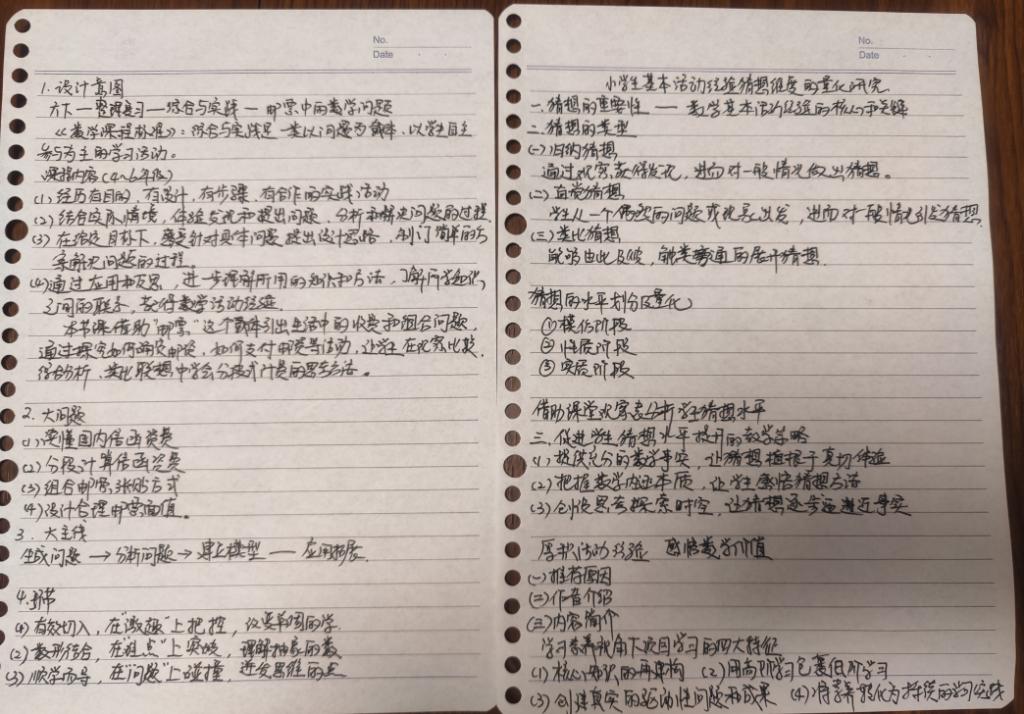 No.
Date
1. 设计意图
六下一整理复习一综合与实践一邮票中的数学问题
《数学课程标准》:综合与实践是一类以问题为载体,以学生自主
参与为主的学习活动。
课标内容(4~6年级)
(1) 经历有目的、有设计、有步骤、有合作的实践活动
(2) 结合实际情境,体验发现和提出问题、分析和解决问题的过程
(3) 在给定目标下,感受针对具体问题提出设计思路、制订简单的方
案解决问题的过程。
(4) 通过应用和反思,进一步理解所用的知识和方法,了解所学知识
之间的联系,获得数学活动经验
本节课借助"邮票"这个载体引出生活中的收费和组合问题,
通过探究如何确定邮资,如何支付邮资等活动,让学生在观察比较、
综合分析、类比联想中学会分段式计费的思考方法。
2. 大问题
(1) 读懂国内信函资费
(2) 分段计算信函资费
(3) 组合邮票张贴方式
(4) 设计合理邮票面值。
3. 大主线
生成问题 → 分析问题 → 建立模型 — 应用拓展
4.
(1) 有效切入,在"激趣"上把控,
(2) 数形结合,在"难点"上突破,理解抽象的数
(3) 顺学而导,在"问题"上碰撞,迸发思维的
No.
Date
小学生基本活动经验猜想维度的量化研究
一、猜想的重要性 — 数学基本活动经验的核心和关键
二、猜想的类型
(一) 归纳猜想
通过观察获得发现,进而对一般情况做出猜想。
(二) 直觉猜想
学生从一个偶然的问题或现象出发,进而对一般情况引起猜想.
(三) 类比猜想
能够由此及彼,触类旁通的展开猜想.
猜想的水平划分及量化
① 模仿阶段
② 发展阶段
③ 实质阶段
借助课堂观察表分析学生猜想水平
三、促进学生猜想水平提升的教学策略
(1) 提供充分的数学事实,让猜想植根于真切体验
(2) 把握数学内在本质,让学生感悟猜想方法
(3) 创设思考探索时空,让猜想逐步逼近事实
厚积活动经验 感悟数学价值
(一) 推荐原因
(二) 作者介绍
(三) 内容简介
学习素养视角下项目学习的四大特征
(1) 核心知识的再建构 (2) 用高阶学习包裹低阶学习
(3) 创建真实的驱动性问题和成果 (4) 将素养转化为持续的学习实践